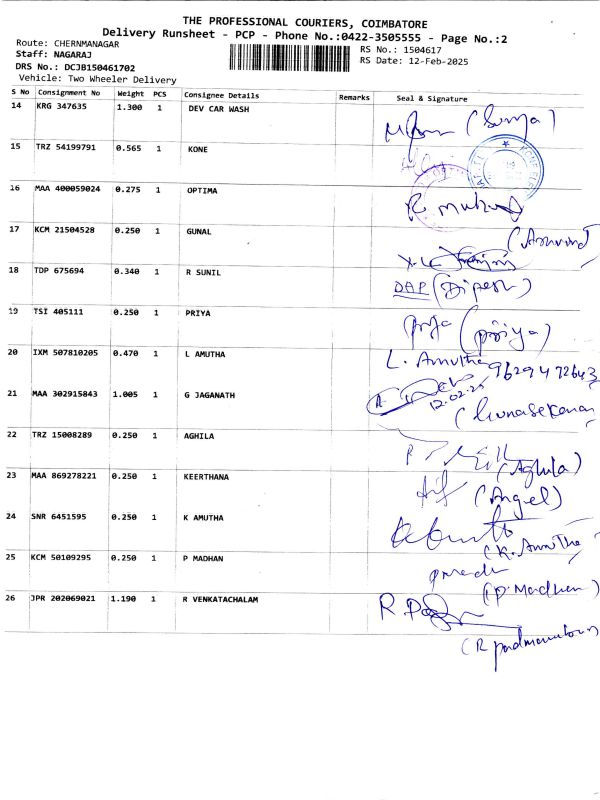 THE PROFESSIONAL COURIERS, COIMBATORE
Delivery Runsheet - PCP - Phone No.:0422-3505555 - Page No.:2
Route: CHERNMANAGAR
Staff: NAGARAJ
DRS No.: DCJB150461702
Vehicle: Two Wheeler Delivery
RS No.: 1504617
RS Date: 12-Feb-2025
S No Consignment No Weight PCS Consignee Details Remarks Seal & Signature
14 KRG 347635 1.300 1 DEV CAR WASH
(Surya)
15 TRZ 54199791 0.565 1 KONE
16 MAA 400059024 0.275 1 OPTIMA
17 KCM 21504528 0.250 1 GUNAL
(Aravind)
18 TDP 675694 0.340 1 R SUNIL
DAP (Dipesh)
19 TSI 405111 0.250 1 PRIYA
priya (priya)
20 IXM 507810205 0.470 1 L AMUTHA
L. Amutha 9629472643
21 MAA 302915843 1.005 1 G JAGANATH
12.02.25
(Gunasekaran
22 TRZ 15008289 0.250 1 AGHILA
(Aghila)
23 MAA 869278221 0.250 1 KEERTHANA
(Angel)
24 SNR 6451595 0.250 1 K AMUTHA
(K. Amutha
25 KCM 50109295 0.250 1 P MADHAN
(P. Madhan)
26 JPR 202069021 1.190 1 R VENKATACHALAM
(R padmanaban)